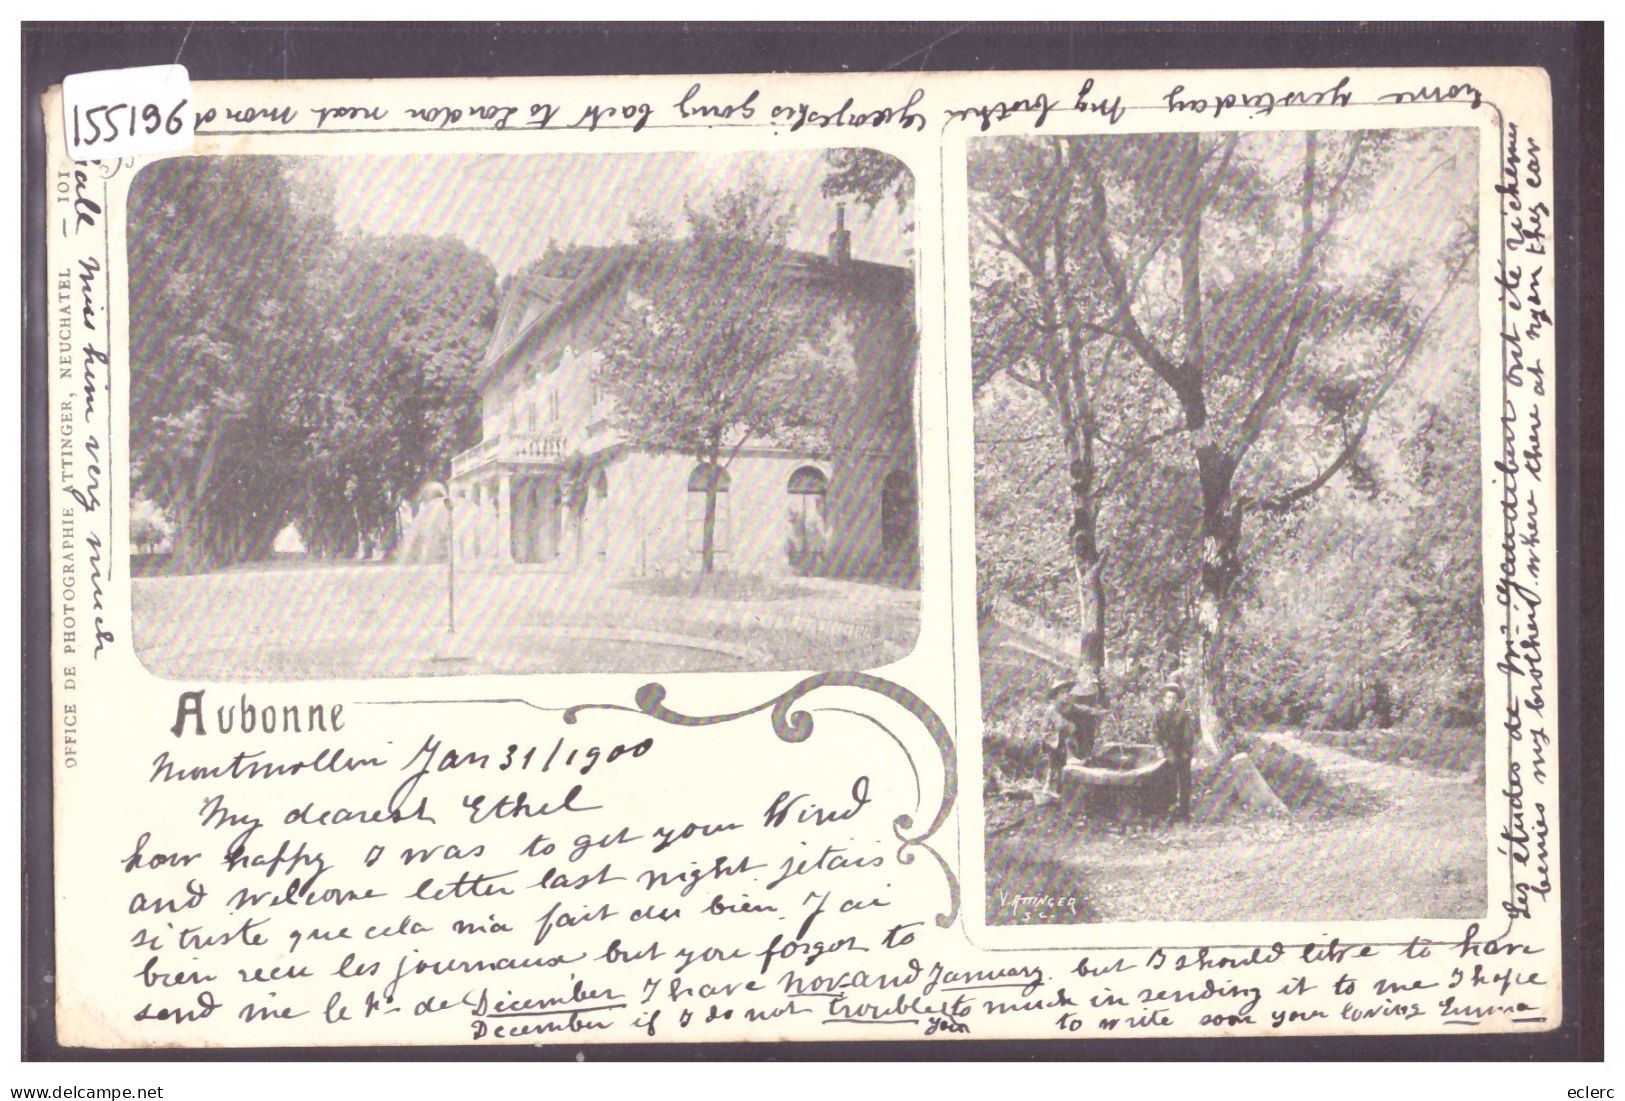 155196
OFFICE DE PHOTOGRAPHIE ATTINGER, NEUCHATEL — 101
Aubonne
V. ATTINGER
Sc.
Montmollin Jan 31/1900
My dearest Ethel
how happy I was to get your kind
and welcome letter last night. jetais
si triste que cela m'a fait du bien. J ai
bien recu les journaux but you forgot to
send me le No de Décember I have nov. and January. but I should like to have
December if I do not trouble you to much in sending it to me I hope
to write soon your loving Emma
Les études de Mr Gaudibur ont été
benies my brothers where there at nyon they
home yersterday My brother George is going back to London next
shall miss him very much
eclerc